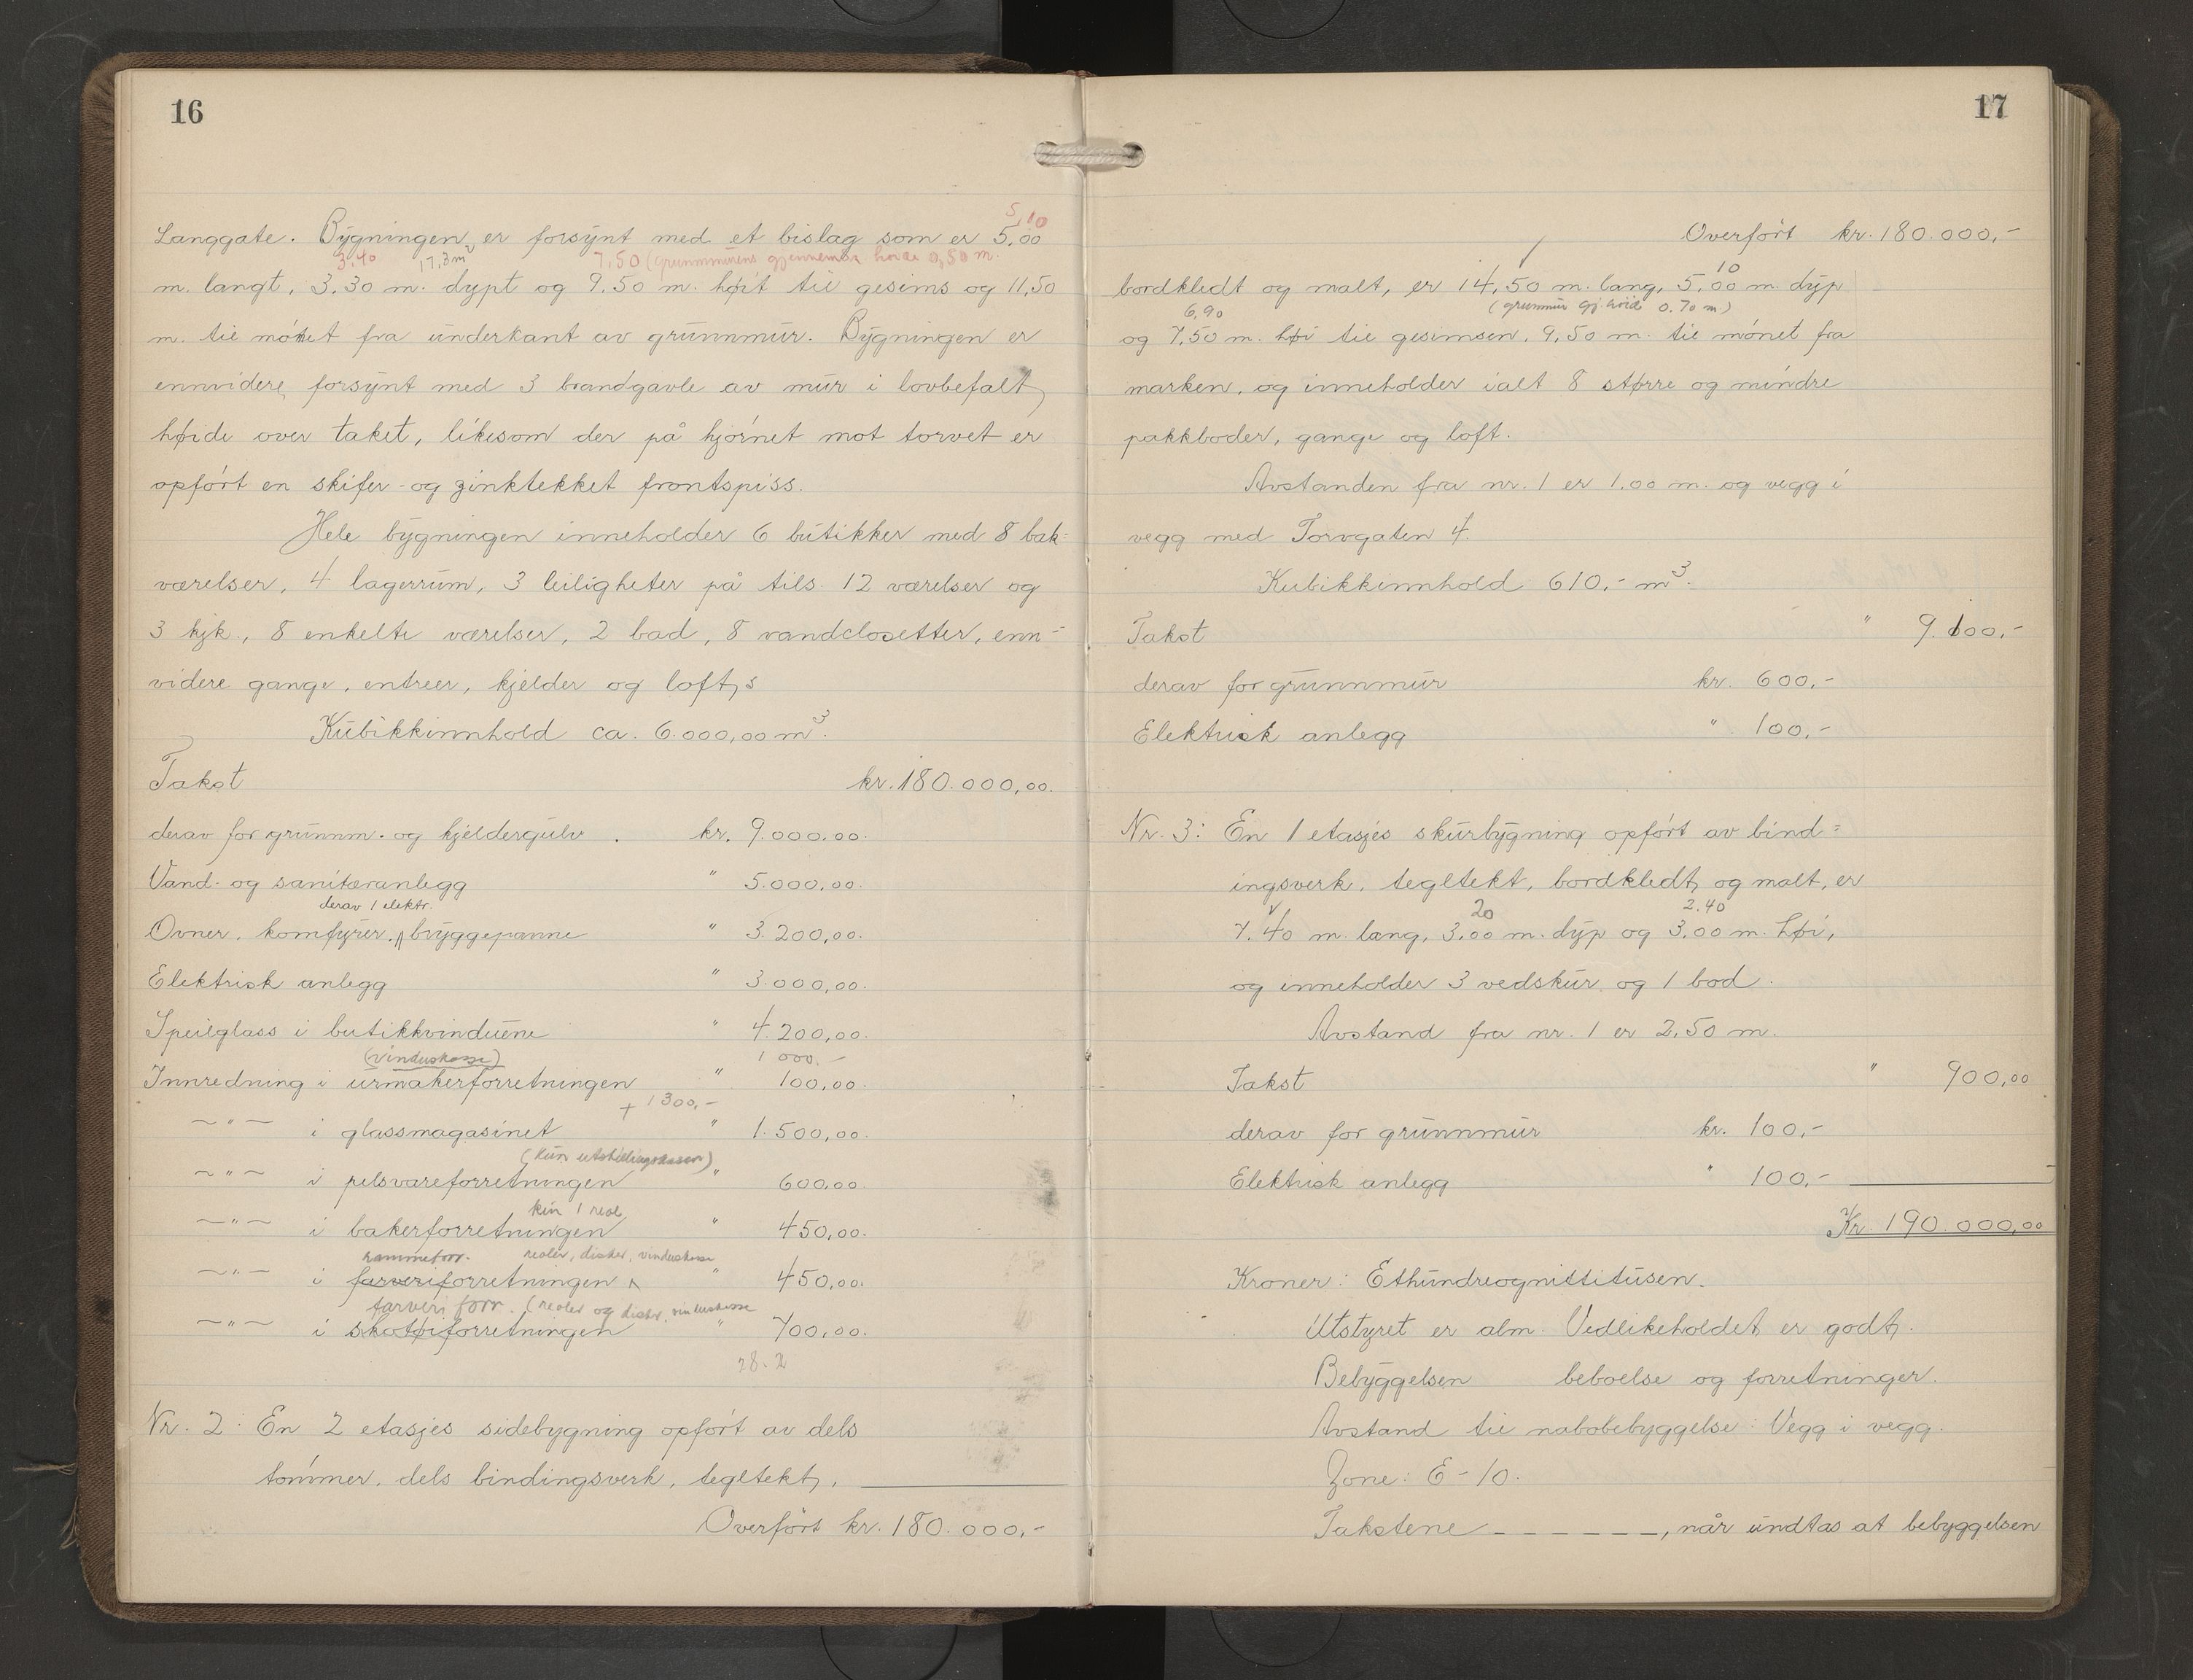 16
5,10
Langgate. Bygningen er forsynt med et bislag som er 5,00
3.40 17,3 m² 7,50 (grunnmurens gjennemsn. høide 0,50 m.
m. langt, 3,30 m. dypt og 9,50 m. høit til gesims og 11,50
m. til mønet fra underkant av grunnmur. Bygningen er
ennvidere forsynt med 3 brandgavle av mur i lovbefalt
høide over taket, likesom der på hjørnet mot torvet er
opført en skifer- og zinktekket frontspiss.
Hele bygningen inneholder 6 butikker med 8 bak-
værelser, 4 lagerrum, 3 leiligheter på tils. 12 værelser og
3 kjk., 8 enkelte værelser, 2 bad, 8 vandclosetter, enn-
videre gange, entreer, kjelder og loft,s
Kubikkinnhold ca. 6.000,00 m³.
Takst kr. 180.000,00.
derav for grunnm. og kjeldergulv . kr. 9.000,00.
Vand- og sanitæranlegg " 5.000,00.
derav 1 elektr.
Ovner, komfyrer, bryggepanne " 3.200,00.
Elektrisk anlegg " 3.000,00.
Speilglass i butikkvinduene " 4.200,00.
(vinduskasse) 1 000.-
Innredning i urmakerforretningen " 100,00.
+ 1300,-
—"— i glassmagasinet " 1.500,00.
(kun utstillingskasser)
—"— i pelsvareforretningen " 600,00.
kun 1 reol
—"— i bakerforretningen " 450,00.
rammeforr. reoler, disker, vinduskasse
—"— i farveriforretningen " 450,00.
farveri forr. (reoler og disker, vinduskasse
—"— i skotøiforretningen " 700,00.
28.2
Nr. 2: En 2 etasjes sidebygning opført av dels
tømmer, dels bindingsverk, tegltekt,
Overført kr. 180.000,-
17
Overført kr. 180.000,-
10
bordkledt og malt, er 14,50 m. lang, 5,00 m. dyp
6,90 (grunnmur gj. høide 0.70 m)
og 7,50 m. høi til gesimsen, 9,50 m. til mønet fra
marken, og inneholder ialt 8 større og mindre
pakkboder, gange og loft.
Avstanden fra nr. 1 er 1,00 m. og vegg i
vegg med Torvgaten 4.
Kubikkinnhold 610,- m³.
Takst " 9.100,-
derav for grunnmur kr. 600,-
Elektrisk anlegg " 100,-
Nr. 3: En 1 etasjes skurbygning opført av bind-
ingsverk, tegltekt, bordkledt og malt, er
20 2.40
7.40 m. lang, 3,00 m. dyp og 3,00 m. høi,
og inneholder 3 vedskur og 1 bod.
Avstand fra nr. 1 er 2,50 m.
Takst " 900,00
derav for grunnmur kr. 100,-
Elektrisk anlegg " 100,-
Kr. 190.000,00
Kroner: Ethundreognittitusen.
Utstyret er alm. Vedlikeholdet er godt.
Bebyggelsen beboelse og forretninger.
Avstand til nabobebyggelse: Vegg i vegg.
Zone: E-10.
Takstene – – – – – –, når undtas at bebyggelsen